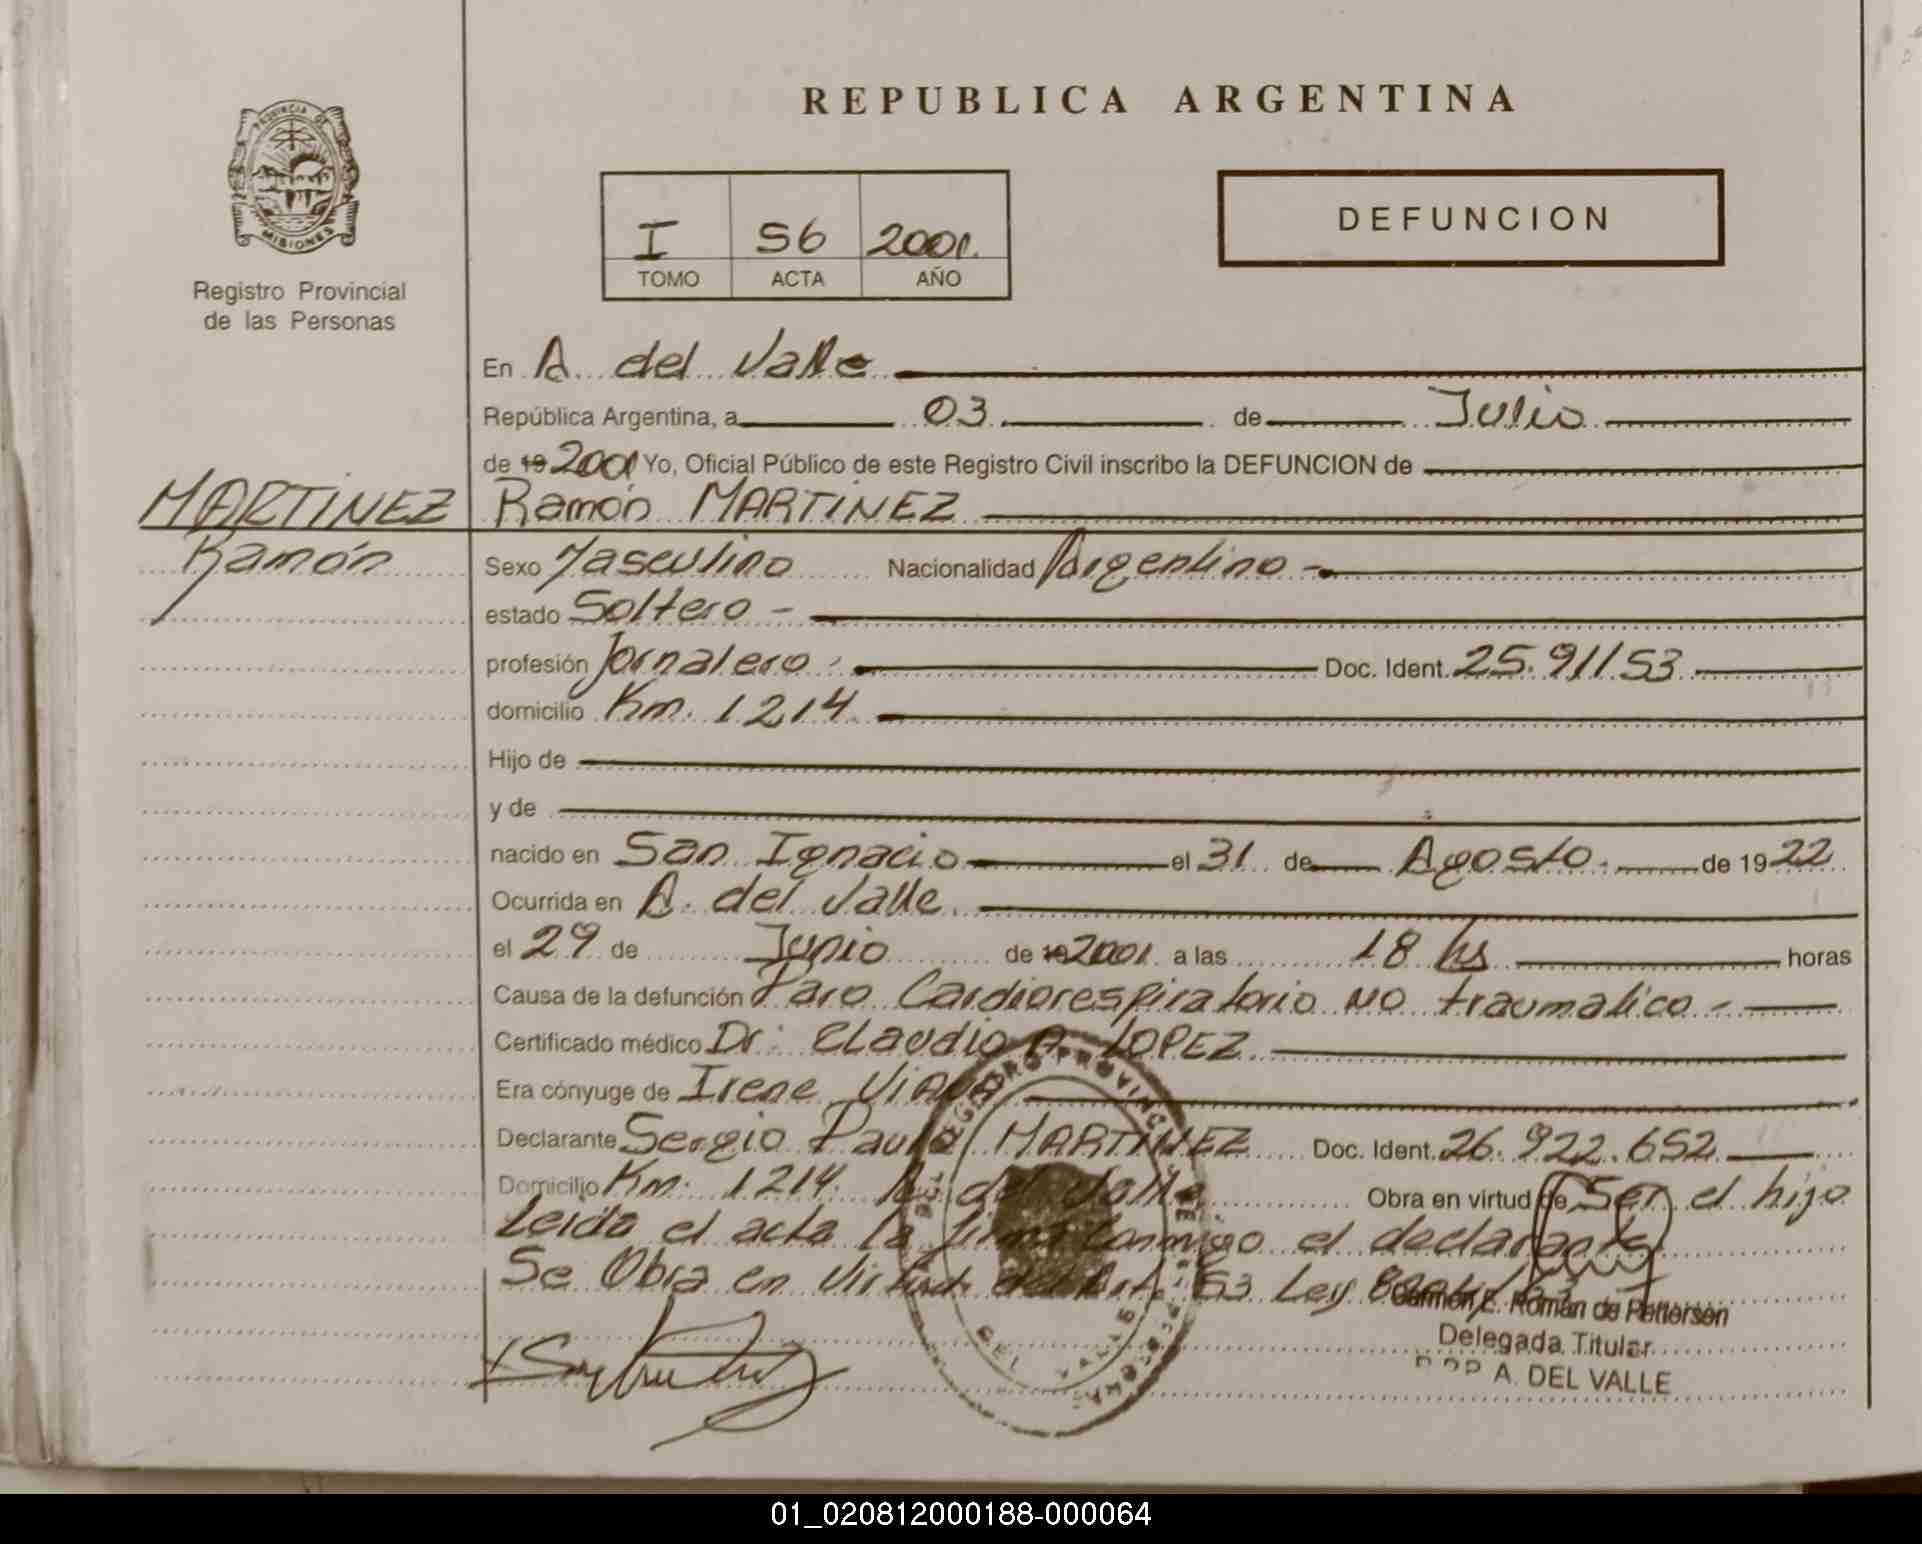 REPUBLICA ARGENTINA
PROVINCIA DE
MISIONES
Registro Provincial
de las Personas
DEFUNCION
I 56 2001.
TOMO ACTA AÑO
En A. del Valle
República Argentina, a 03 de Julio
de 19 2001 Yo, Oficial Público de este Registro Civil inscribo la DEFUNCION de
MARTINEZ Ramón MARTINEZ
Ramón
Sexo Masculino Nacionalidad Argentino -
estado Soltero -
profesión Jornalero. Doc. Ident. 25.911.53
domicilio Km. 1214
Hijo de
y de
nacido en San Ignacio el 31 de Agosto. de 1922
Ocurrida en A. del Valle
el 29 de Junio de 19 2001. a las 18 hs horas
Causa de la defunción Paro Cardiorespiratorio NO traumatico -
Certificado médico Dr. Claudio A. LOPEZ
Era cónyuge de Irene
Declarante Sergio MARTINEZ Doc. Ident. 26.922.652
Domicilio Km. 1214 A. del Valle Obra en virtud de Ser el hijo
Leida el acta la firma conmigo el declarante
Se Obra en Virtud del Art. 53 Ley
E. Román de
Delegada Titular
A. DEL VALLE
REGISTRO PROVINCIAL
DEL VALLE
01_020812000188-000064